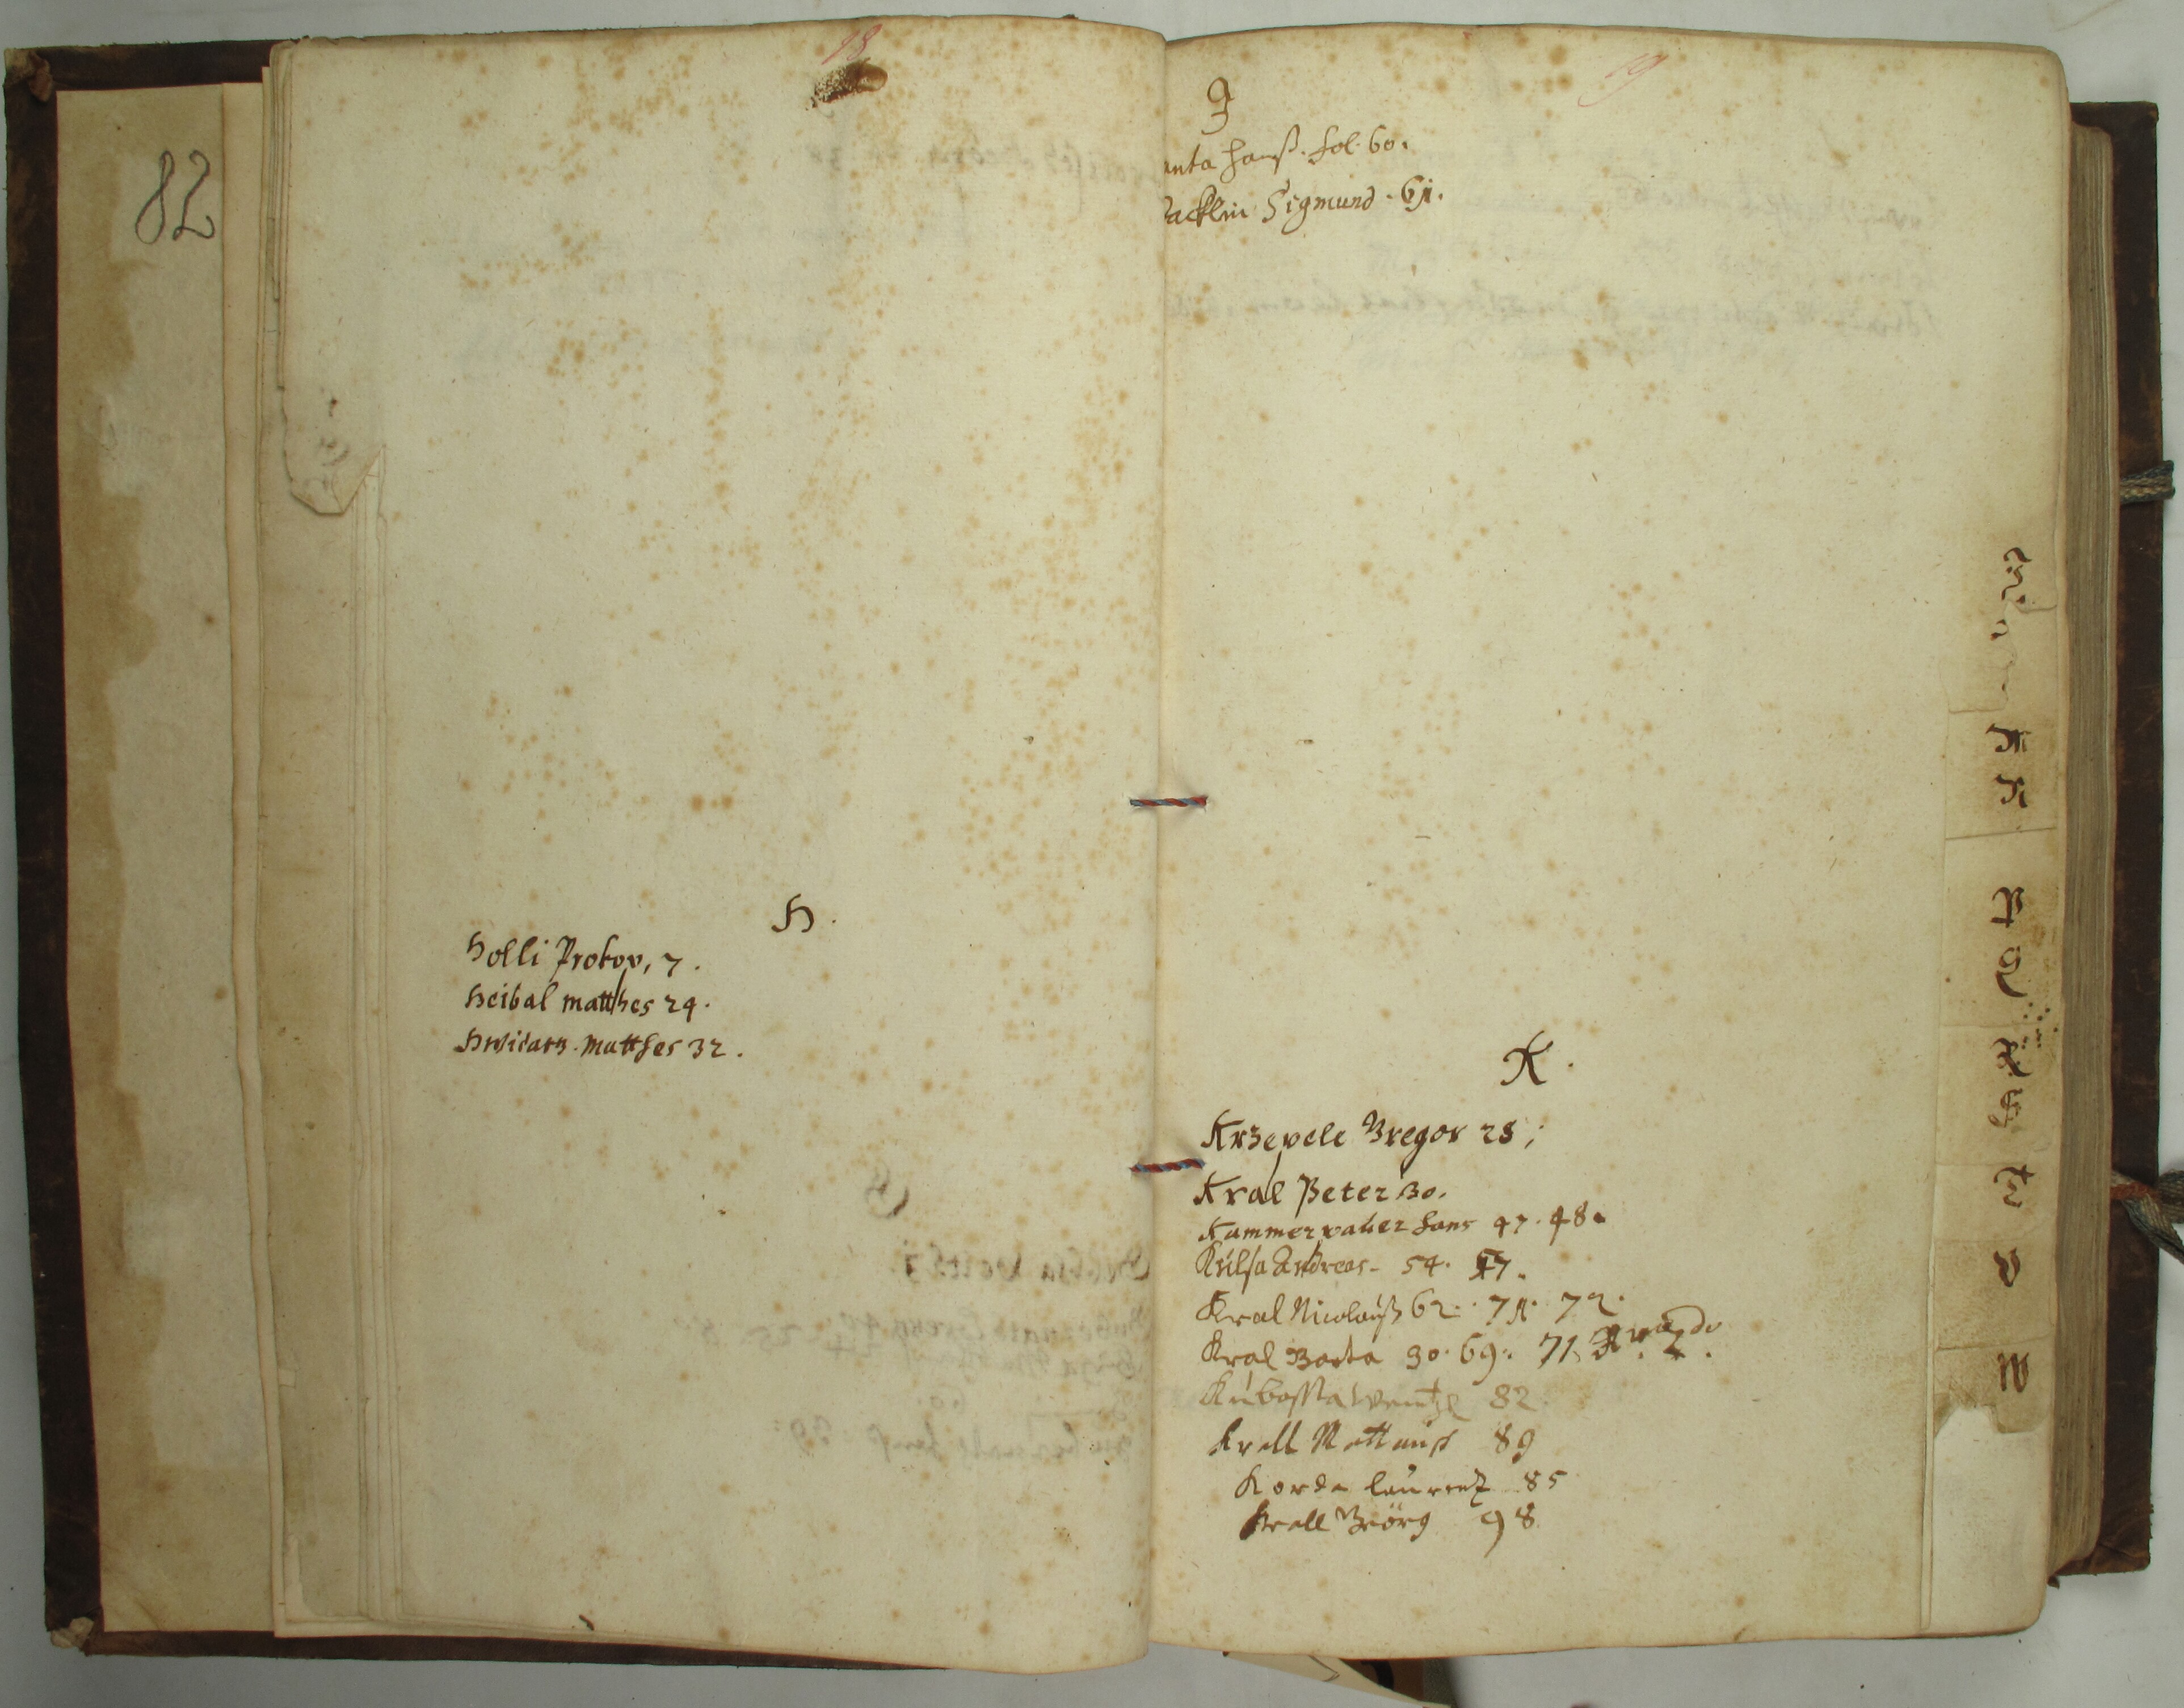 82
18
H.
Holli Prokop, 7.
Heibal Matthes 24.
Hwiəatz. Matthes 32.
19
J
anta Hanß. fol. 60.
acklin Sigmund. 61.
K.
Krzepele Gregor 28;
Kral Peter 30.
Kammerpauer Hans 47. 48.
Kulsa Andreas. 54. 57.
Kral Nicolauß 62. 71. 72.
Kral Barta 30. 69. 71.
Kubassta Wentzl 82.
Krall Mattauß 89
Korda Laurentz 85
Krall Geörg 98
K
N
P
Q
R
S
T
V
W